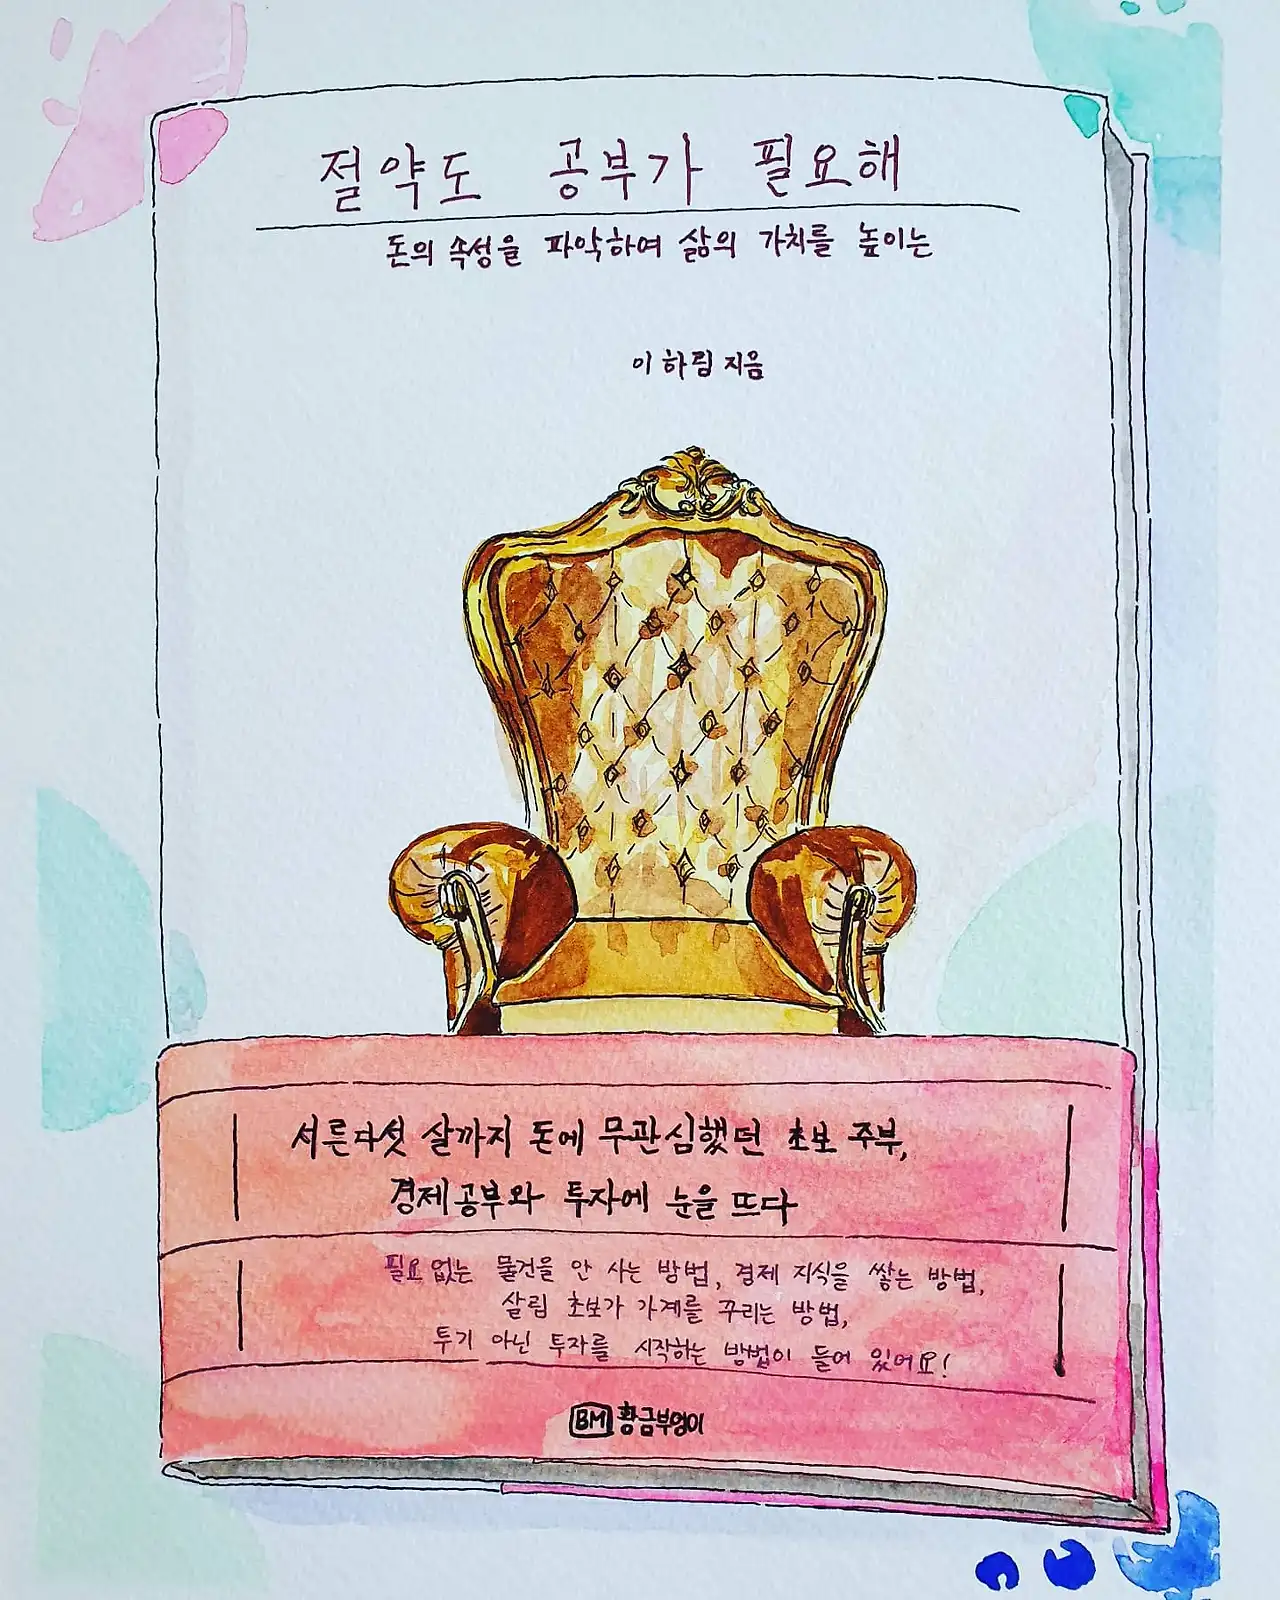 절약도 공부가 필요해
돈의 속성을 파악하여 삶의 가치를 높이는
이하림 지음
서른다섯 살까지 돈에 무관심했던 초보 주부,
경제공부와 투자에 눈을 뜨다
필요없는 물건을 안 사는 방법, 경제 지식을 쌓는 방법,
살림 초보가 가계를 꾸리는 방법,
투기 아닌 투자를 시작하는 방법이 들어 있어요!
BM 황금부엉이